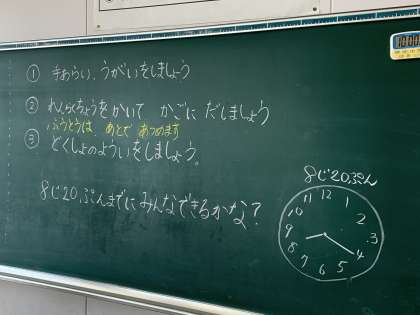 ① 手あらい、うがいをしましょう
② れんらくちょうをかいて かごに だしましょう
ふうとうは あとで あつめます
③ どくしょのよういをしましょう。
8じ20ぷんまでに みんなできるかな?
8じ20ぷん
12
1
2
3
4
5
6
7
8
9
10
11